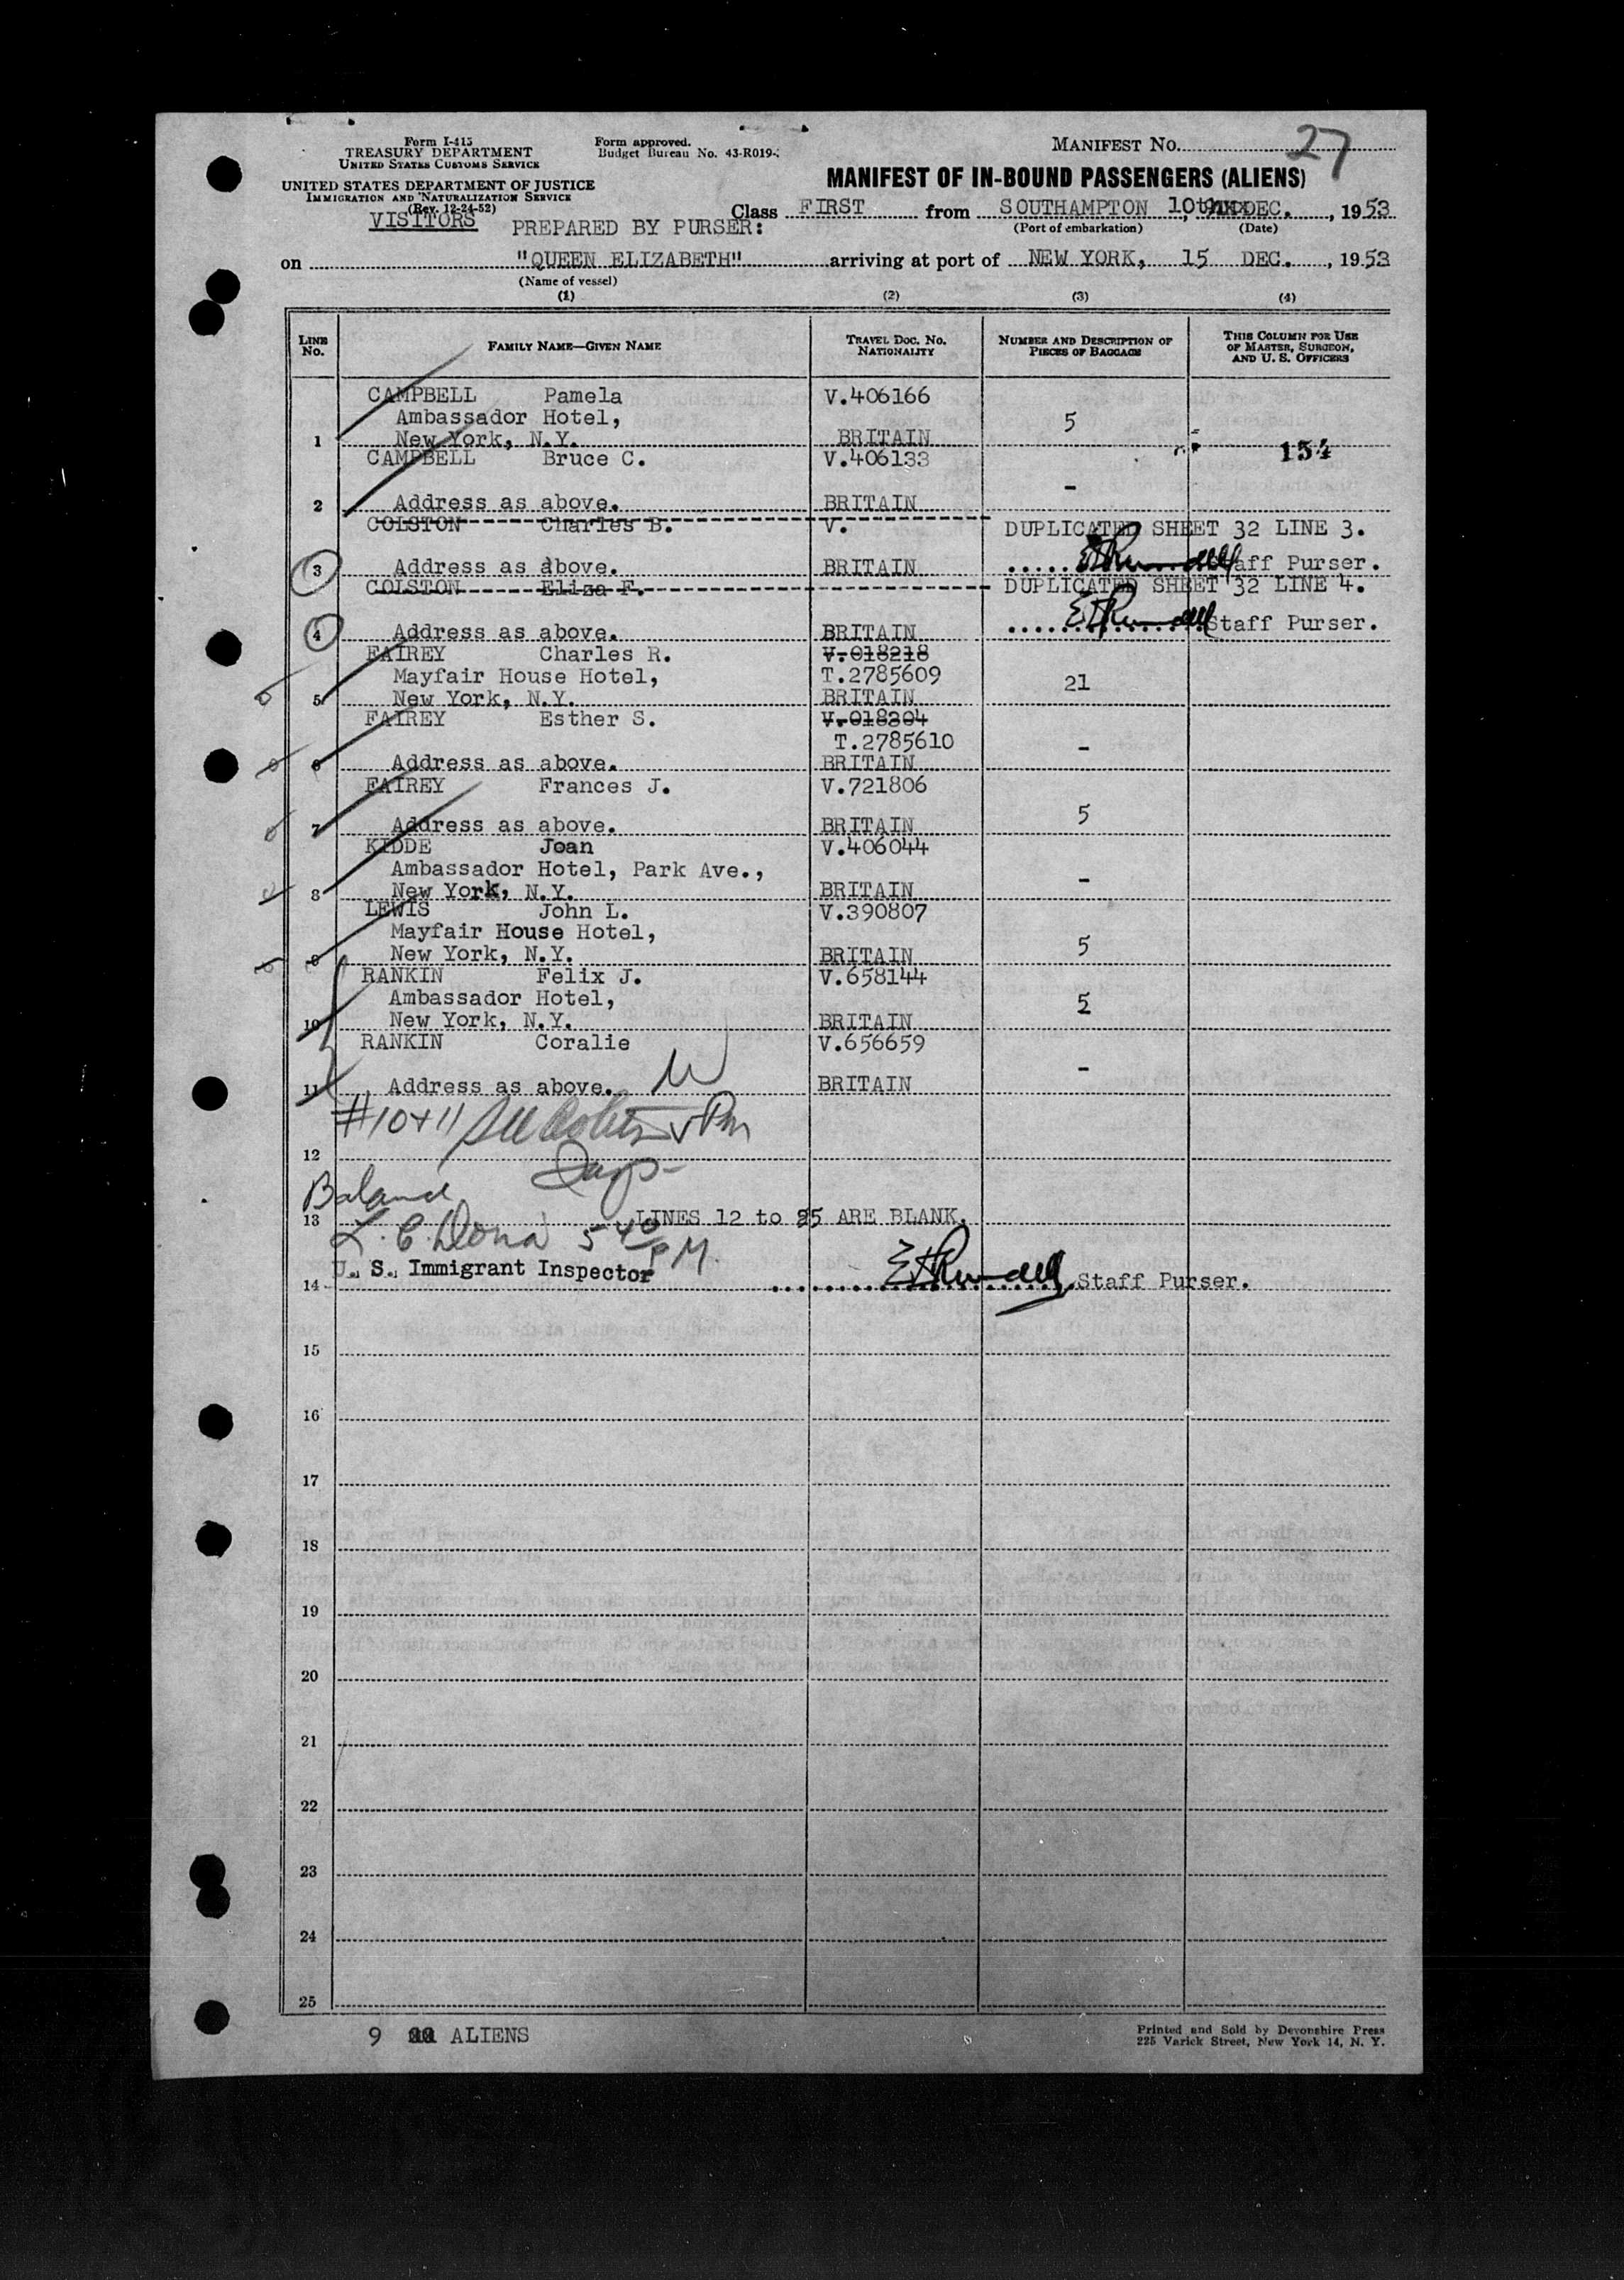 Form I-415
TREASURY DEPARTMENT
UNITED STATES CUSTOMS SERVICE
UNITED STATES DEPARTMENT OF JUSTICE
IMMIGRATION AND NATURALIZATION SERVICE
(Rev. 12-24-52)
VISITORS
Form approved.
Budget Bureau No. 43-R019-
MANIFEST No. 27
MANIFEST OF IN-BOUND PASSENGERS (ALIENS)
PREPARED BY PURSER:
Class FIRST from SOUTHAMPTON 10th DEC., 1953
(Port of embarkation) (Date)
on "QUEEN ELIZABETH" arriving at port of NEW YORK, 15 DEC., 1953
(Name of vessel)
(1) (2) (3) (4)
LINE No. FAMILY NAME—GIVEN NAME TRAVEL DOC. No. NATIONALITY NUMBER AND DESCRIPTION OF PIECES OF BAGGAGE THIS COLUMN FOR USE OF MASTER, SURGEON, AND U. S. OFFICERS
CAMPBELL Pamela V.406166
Ambassador Hotel, 5
1 New York, N.Y. BRITAIN
154
CAMPBELL Bruce C. V.406133
-
2 Address as above. BRITAIN
COLSTON Charles B. V. DUPLICATED SHEET 32 LINE 3.
3 Address as above. BRITAIN Staff Purser.
COLSTON Eliza F. DUPLICATED SHEET 32 LINE 4.
4 Address as above. BRITAIN Staff Purser.
FAIREY Charles R. V.018218
Mayfair House Hotel, T.2785609 21
5 New York, N.Y. BRITAIN
FAIREY Esther S. V.018204
T.2785610 -
6 Address as above. BRITAIN
FAIREY Frances J. V.721806
5
7 Address as above. BRITAIN
KIDDE Joan V.406044
Ambassador Hotel, Park Ave., -
8 New York, N.Y. BRITAIN
LEWIS John L. V.390807
Mayfair House Hotel, 5
9 New York, N.Y. BRITAIN
RANKIN Felix J. V.658144
Ambassador Hotel, 5
10 New York, N.Y. BRITAIN
RANKIN Coralie V.656659
-
11 Address as above. BRITAIN
#10+11
12
13 LINES 12 to 25 ARE BLANK.
5 40 PM.
U. S. Immigrant Inspector
14 Staff Purser.
15
16
17
18
19
20
21
22
23
24
25
9 ALIENS
Printed and Sold by Devonshire Press
225 Varick Street, New York 14, N. Y.